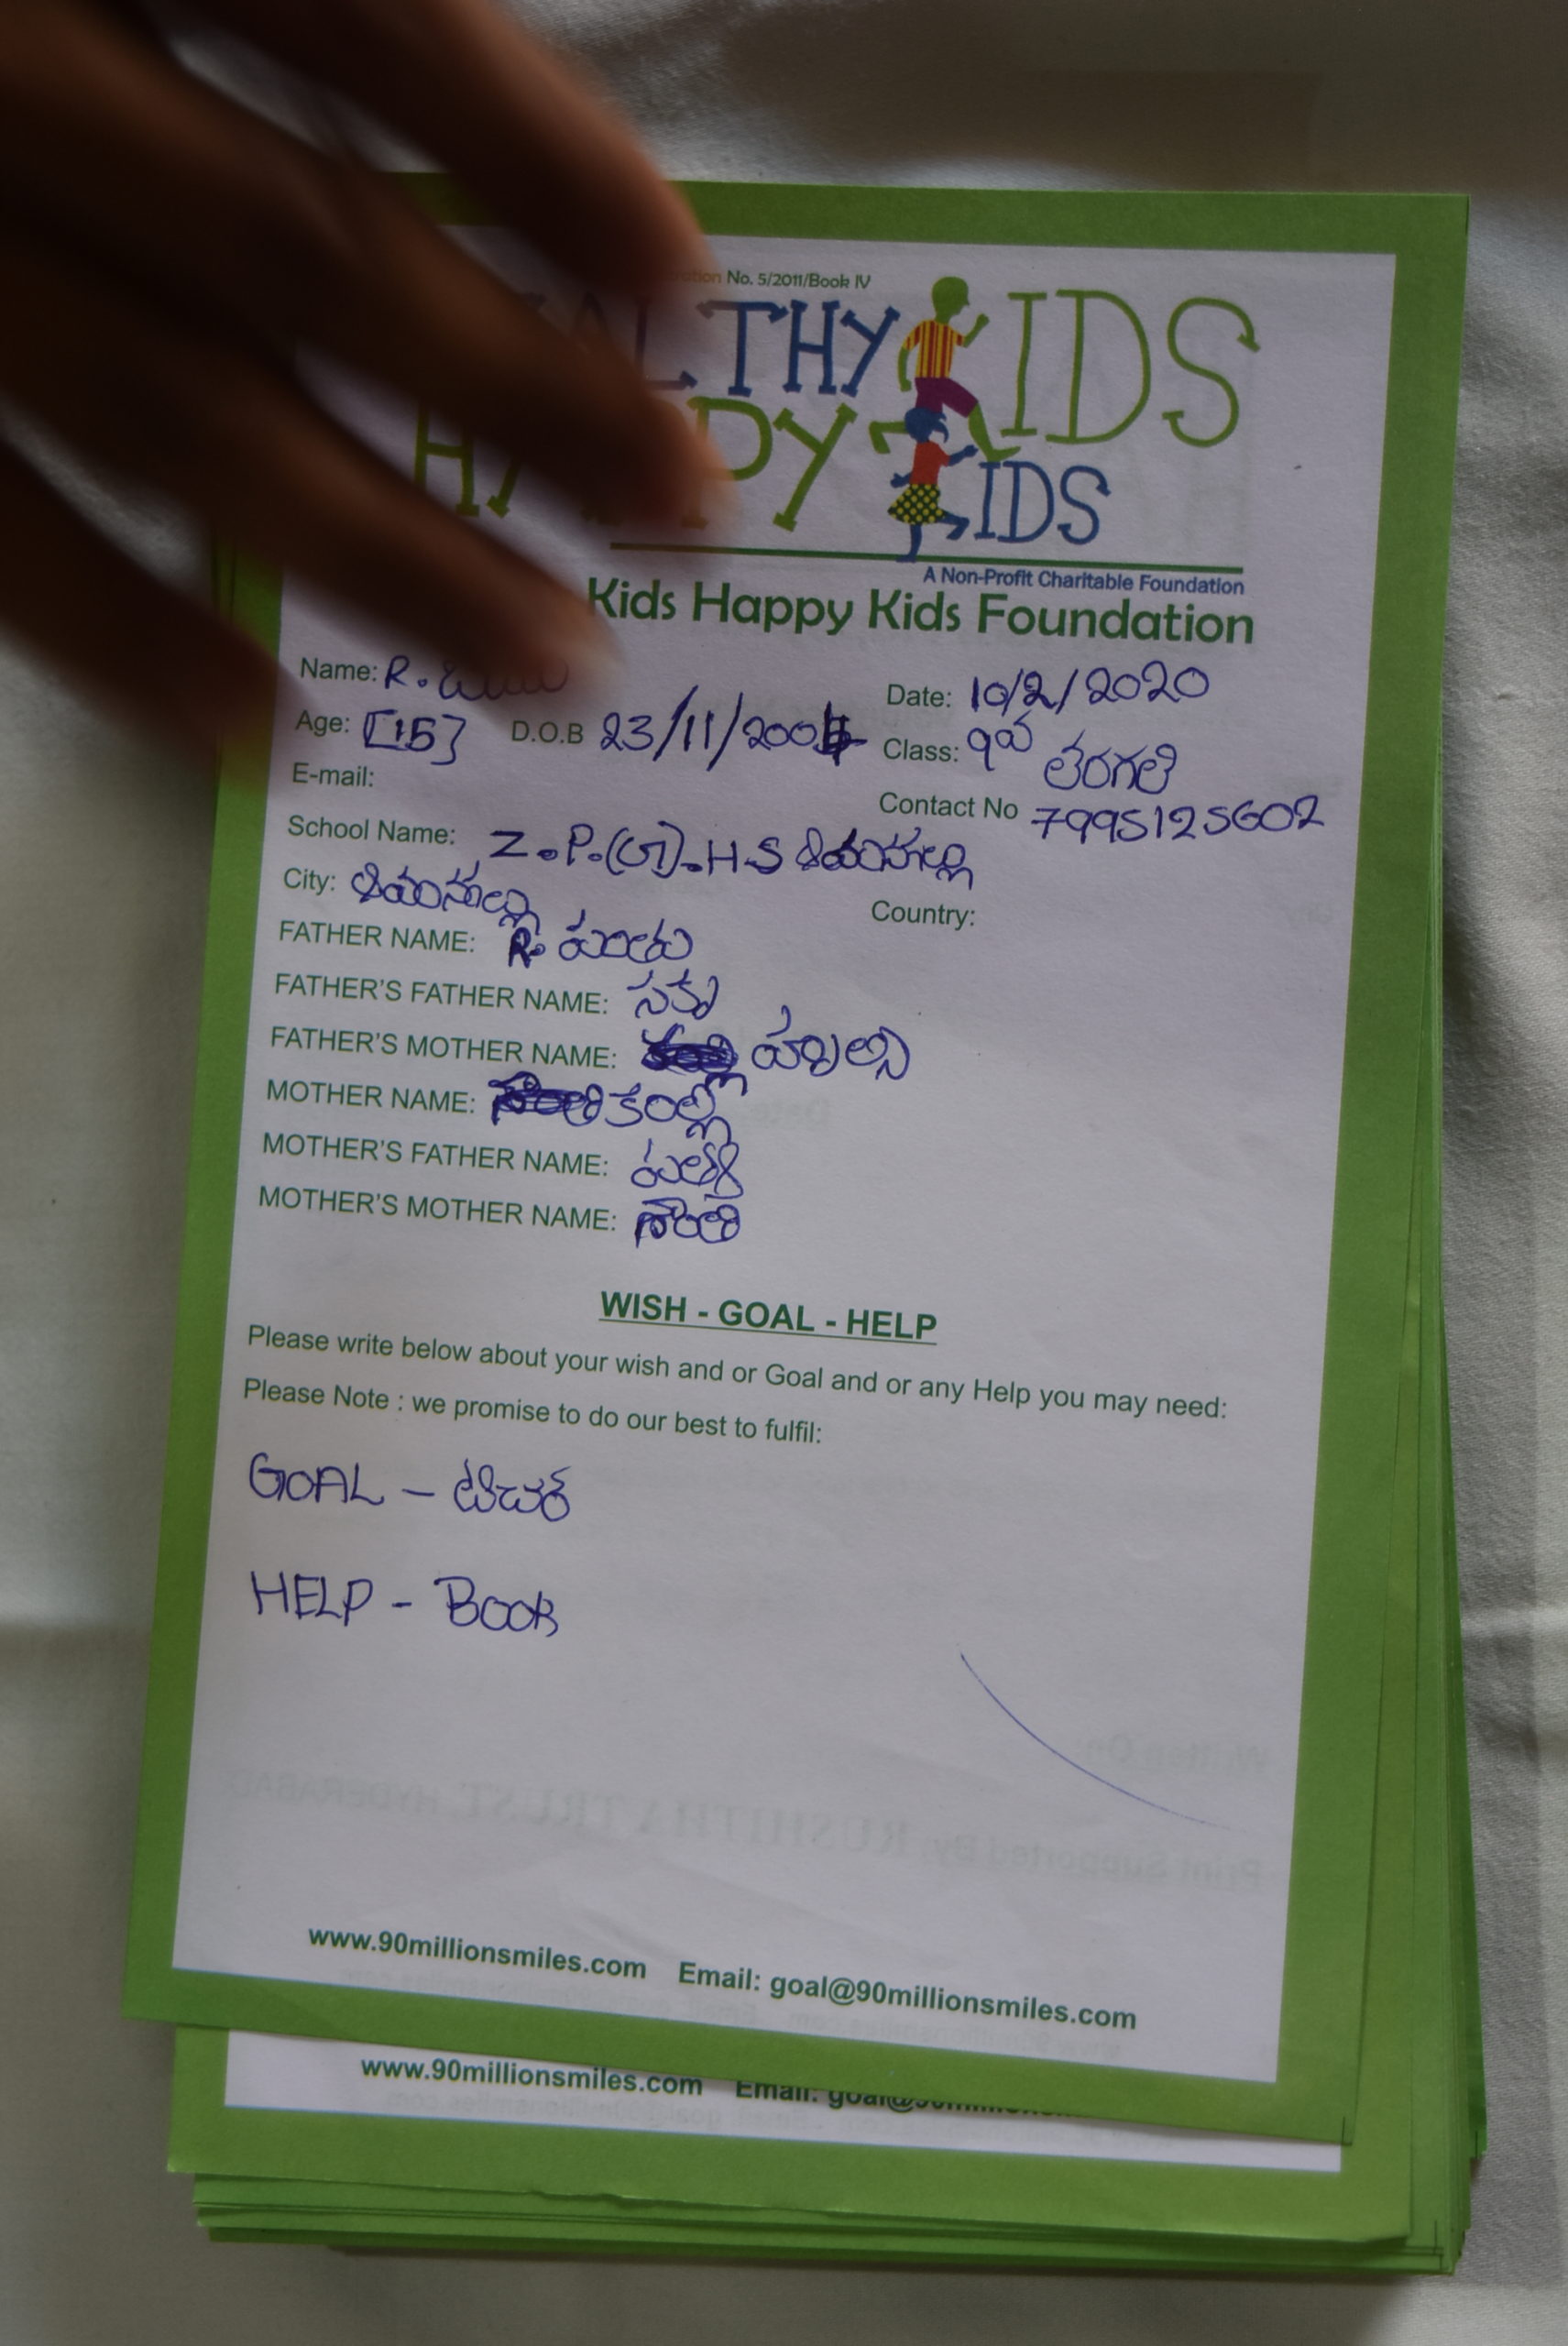 No. 5/2011/Book IV
HEALTHY KIDS
HAPPY KIDS
A Non-Profit Charitable Foundation
Kids Happy Kids Foundation
Name: R. Date: 10/2/2020
Age: [15] D.O.B 23/11/2004 Class: 9వ తరగతి
E-mail: Contact No 7995125602
School Name: Z.P.(G).H.S తిమనపల్లి
City: తిమనపల్లి Country:
FATHER NAME: R. పంతు
FATHER'S FATHER NAME:
FATHER'S MOTHER NAME:
MOTHER NAME:
MOTHER'S FATHER NAME:
MOTHER'S MOTHER NAME: శాంతి
WISH - GOAL - HELP
Please write below about your wish and or Goal and or any Help you may need:
Please Note : we promise to do our best to fulfil:
GOAL - టిచర్
HELP - BOOK
www.90millionsmiles.com Email: goal@90millionsmiles.com
www.90millionsmiles.com Email: